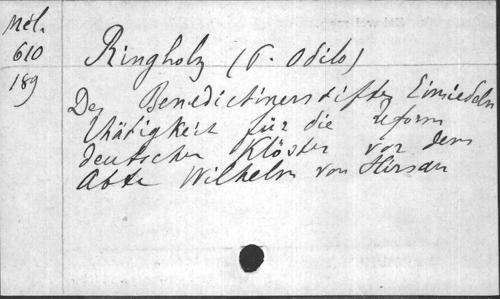 Mél.
610
189
Ringholz (P. Odilo)
Des Benedictinerstiftes Einsiedeln
Thätigkeit für die reform
deutscher Klöster vor dem
Abte Wilhelm von Hirsau